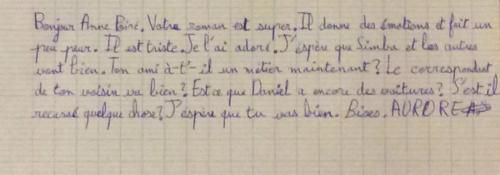 Bonjour Anne Poiré. Votre roman est super. Il donne des émotions et fait un
peu peur. Il est triste. Je l'ai adoré. J'espère que Simba et les autres
vont bien. Ton ami à-t'-il un métier maintenant? Le correspondant
de ton voisin va bien? Est ce que Daniel a encore des voitures? S'est il
recassé quelque chose? J'espère que tu vas bien. Bises. AURORE